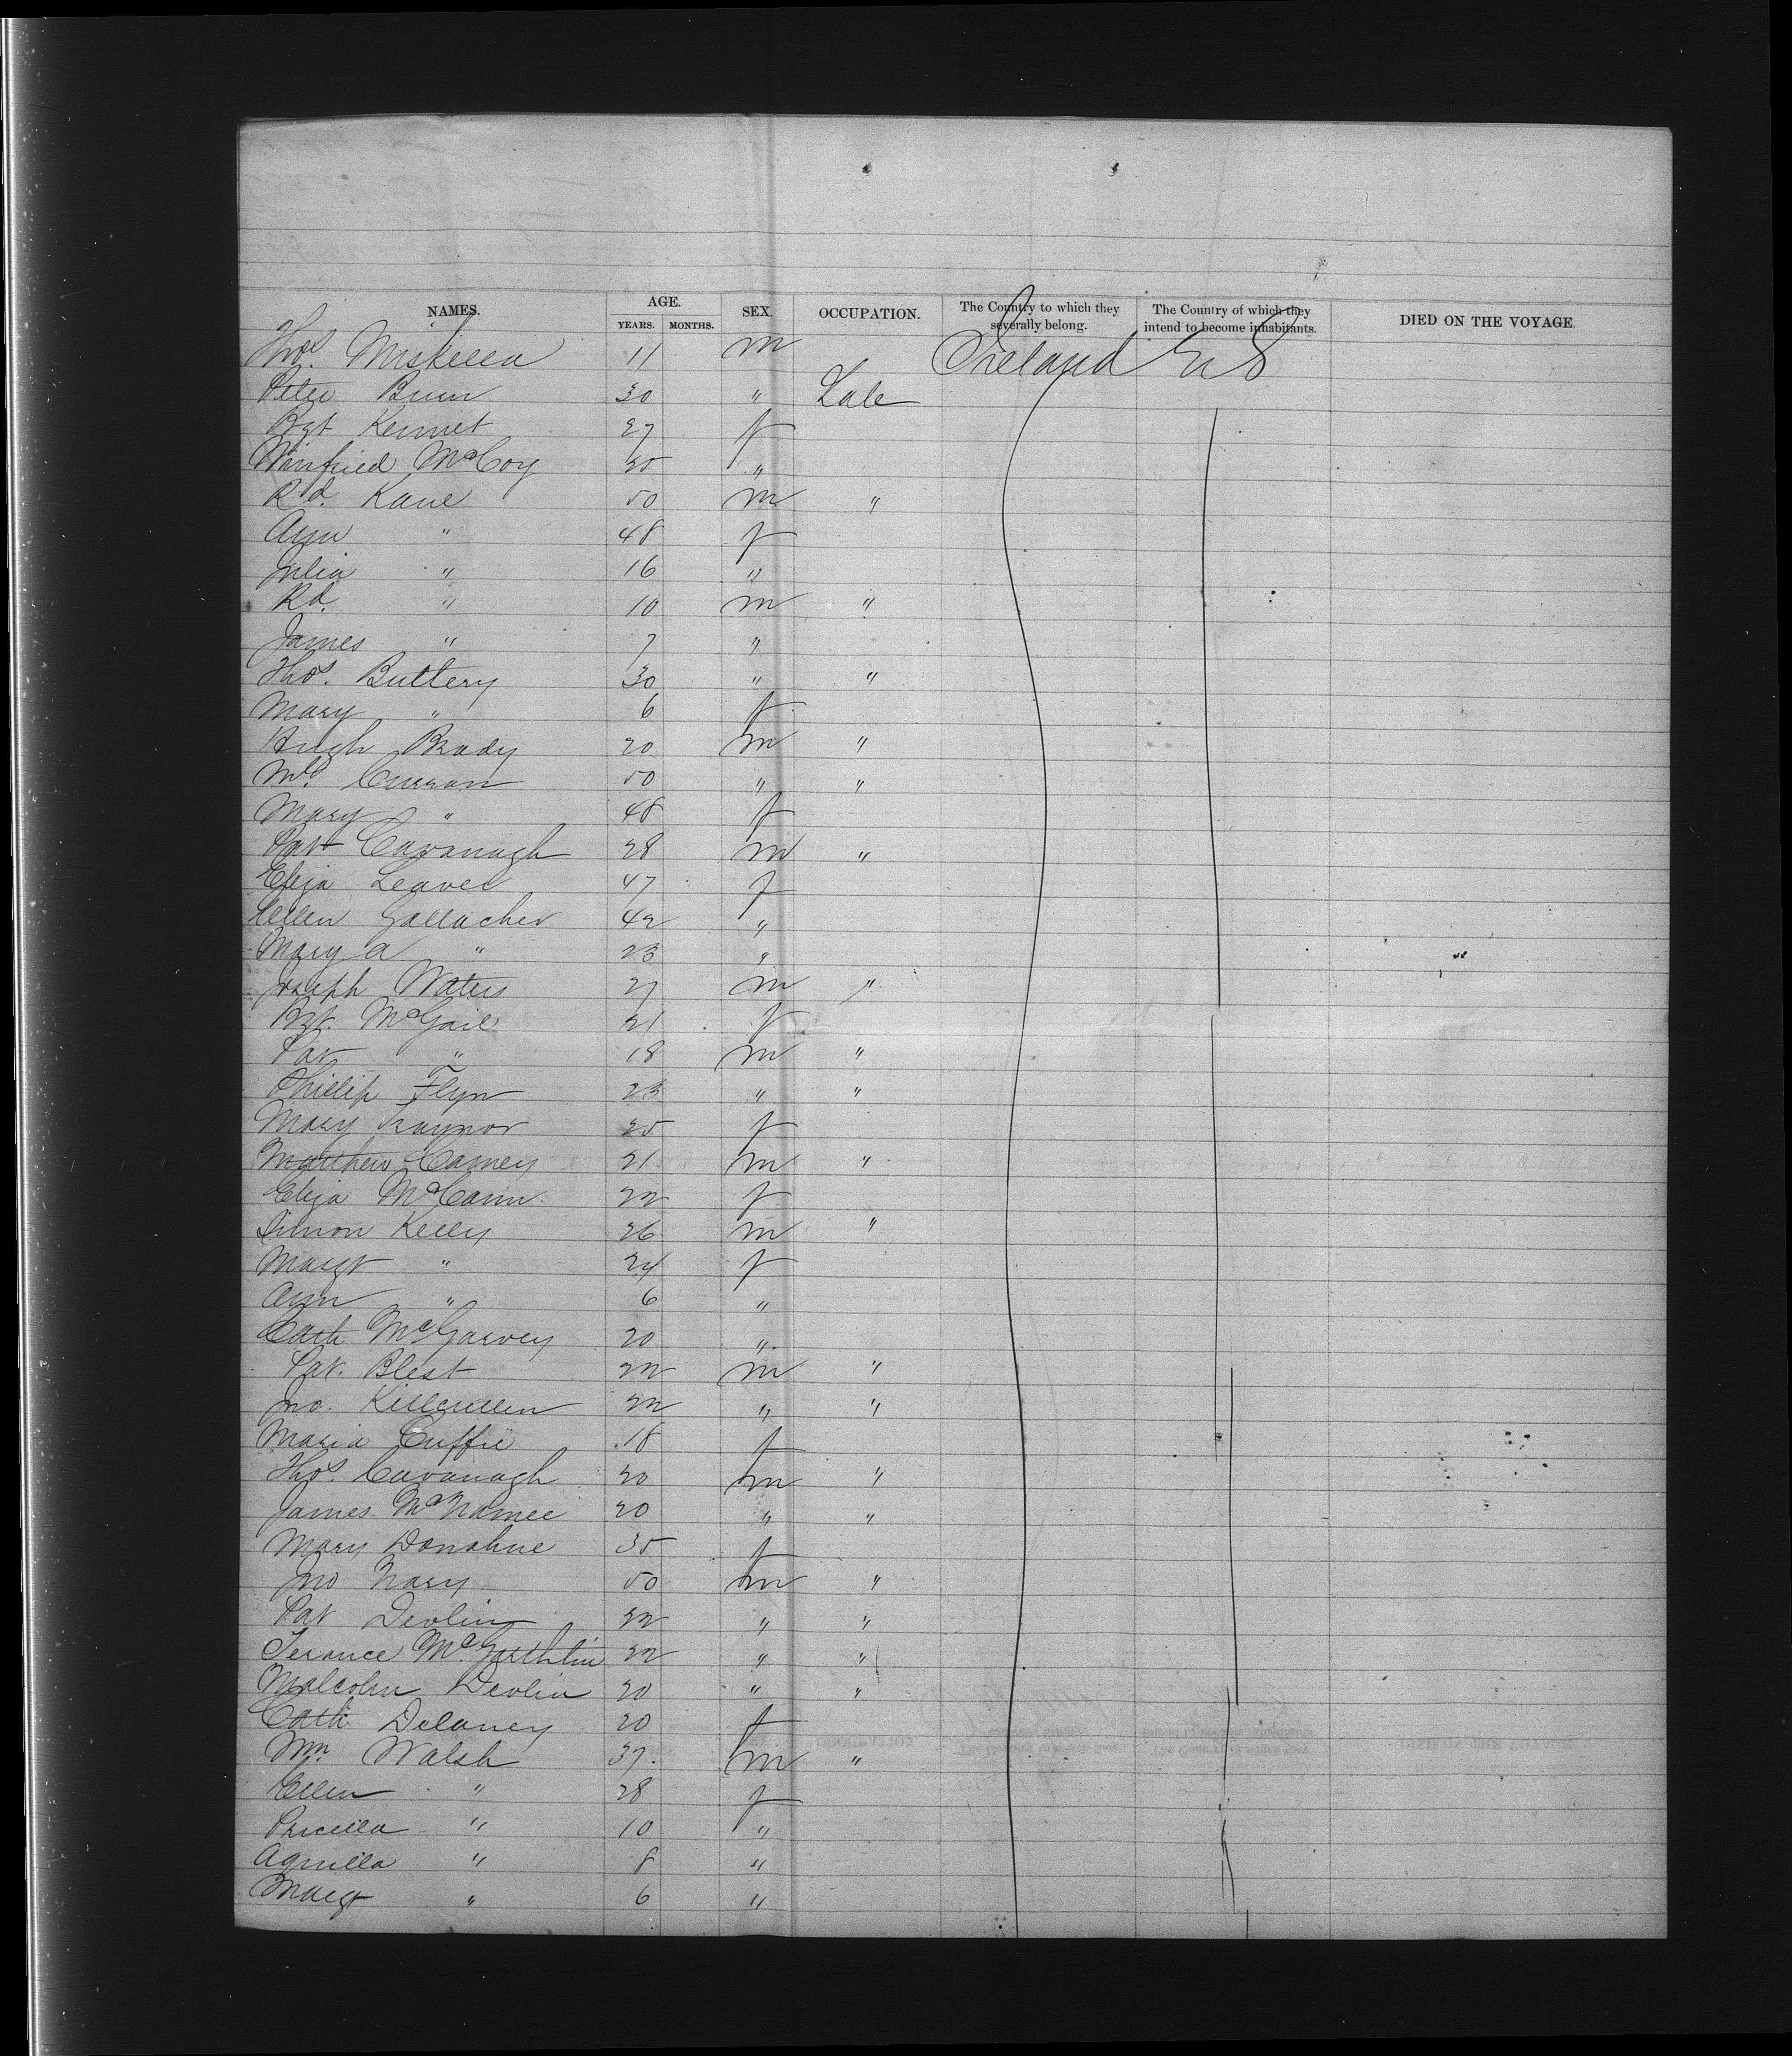 NAMES. AGE. SEX. OCCUPATION. The Country to which they severally belong. The Country of which they intend to become inhabitants. DIED ON THE VOYAGE
YEARS. MONTHS.
Thos. 11 m Ireland U S
Peter 30 " Lab
Bgt 27 f
Winfried McCoy 25 "
Rd. Kane 50 m "
Ann " 48 f
Julia " 16 "
Rd. " 10 m "
James " 7 "
Thos. Buttery 30 " "
Mary " 6 f
Hugh Brady 20 m "
Ml. Curran 50 " "
Mary " 48 f
Pat Cavanagh 28 m "
Eliza Leavel 47 f
Ellen Gallacher 42 "
Mary A " 23 "
Joseph Waters 27 m "
Bgt. McGail 21 f
Pat " 18 m "
Phillip Flyn 23 " "
Mary Traynor 25 f
Matthew Carney 21 m "
Eliza McCann 22 f
Simon Kelly 26 m "
Margt " 24 f
Ann " 6 "
Cath McGarvey 20 "
Pat. Blest 22 m "
Jno. Killcullen 22 " "
Maria Cuffie 18 f
Thos. Cavanagh 20 m "
James McNamee 20 " "
Mary Donahue 35 f
Jno Nary 50 m "
Pat Devlin 22 " "
Terance 22 " "
Malcolm Devlin 20 " "
Cath Delaney 20 f
Wm Walsh 37. m "
Ellen " 28 f
Pricilla " 10 "
Aquilla " 8 "
Margt " 6 "